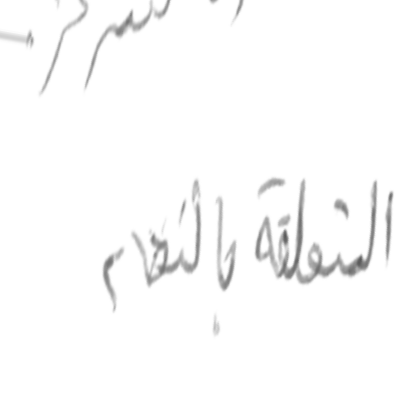 المتعلقة بالنظام